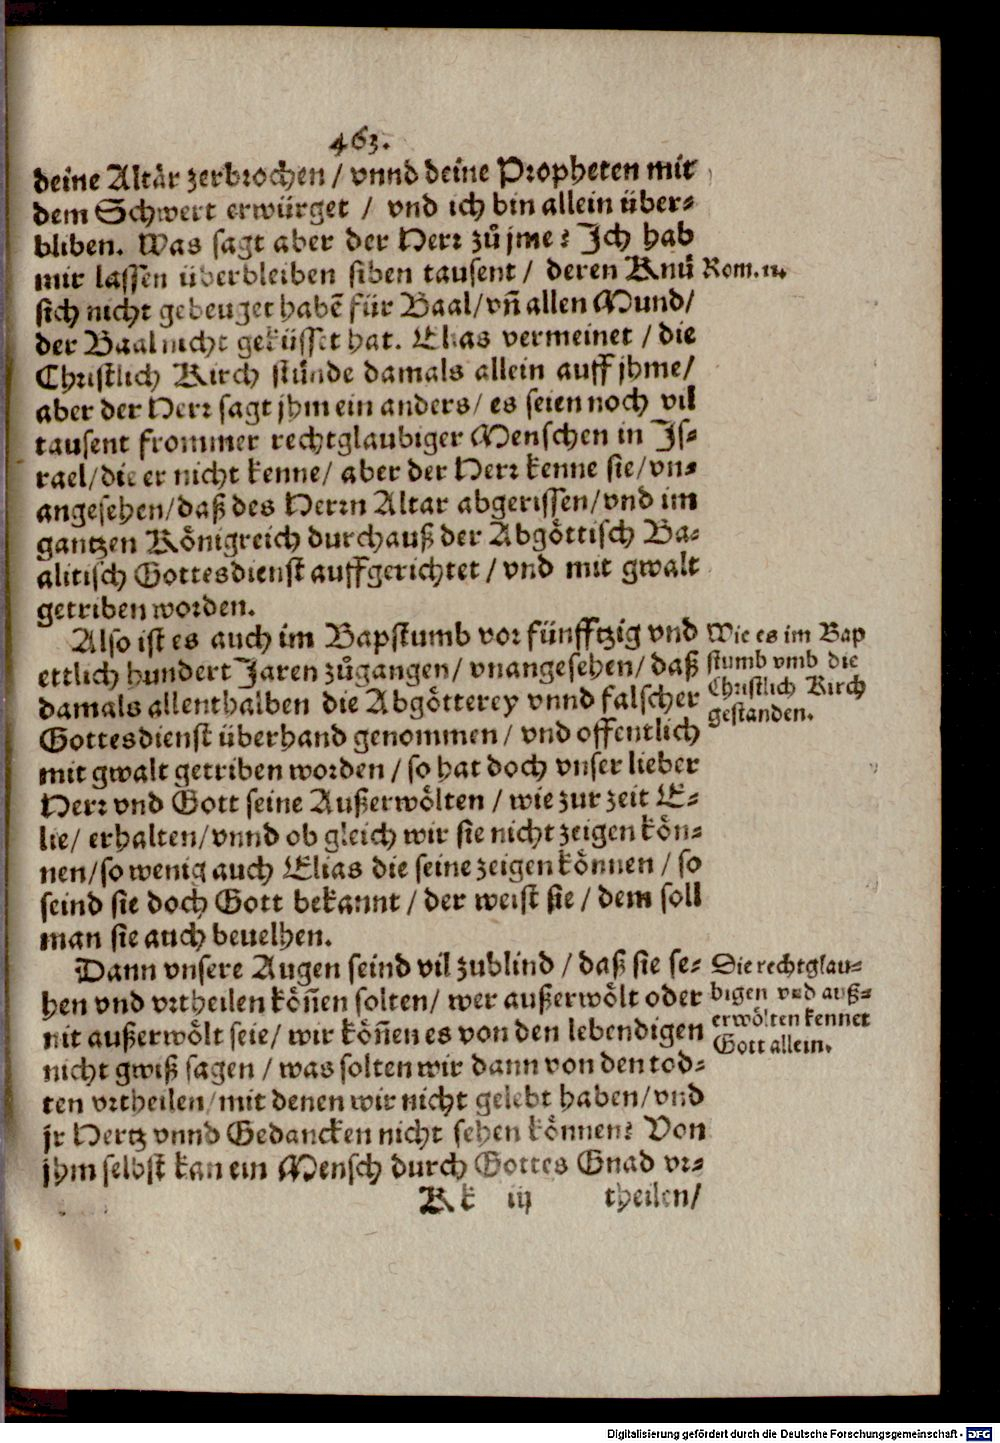 463.
deine Altär zerbrochen / vnnd deine Propheten mit
dem Schwert erwürget / vnd ich bin allein über-
bliben. Was sagt aber der Herr zů jme? Ich hab
mir lassen überbleiben siben tausent / deren Knü
Rom. 11.
sich nicht gebeuget habẽ für Baal / vñ allen Mund /
der Baal nicht geküsset hat. Elias vermeinet / die
Christlich Kirch stünde damals allein auff jhme /
aber der Herr sagt jhm ein anders / es seien noch vil
tausent frommer rechtglaubiger Menschen in Js-
rael / die er nicht kenne / aber der Herr kenne sie / vn-
angesehen / daß des Herrn Altar abgerissen / vnd im
gantzen Königreich durchauß der Abgöttisch Ba-
alitisch Gottesdienst auffgerichtet / vnd mit gwalt
getriben worden.
Also ist es auch im Bapstumb vor fünfftzig vnd
ettlich hundert Jaren zůgangen / vnangesehen / daß
damals allenthalben die Abgötterey vnnd falscher
Gottesdienst überhand genommen / vnd offentlich
mit gwalt getriben worden / so hat doch vnser lieber
Herr vnd Gott seine Außerwölten / wie zur zeit E-
lie / erhalten / vnnd ob gleich wir sie nicht zeigen kön-
nen / so wenig auch Elias die seine zeigen können / so
seind sie doch Gott bekannt / der weist sie / dem soll
man sie auch beuelhen.
Wie es im Bap
stumb vmb die
Christlich Kirch
gestanden.
Dann vnsere Augen seind vil zublind / daß sie se-
hen vnd vrtheilen köñen solten / wer außerwölt oder
nit außerwölt seie / wir köñen es von den lebendigen
nicht gwiß sagen / was solten wir dann von den tod-
ten vrtheilen / mit denen wir nicht gelebt haben / vnd
jr Hertz vnnd Gedancken nicht sehen können? Von
jhm selbst kan ein Mensch durch Gottes Gnad vr-
Die rechtglau-
bigen vnd auß-
erwölten kennet
Gott allein.
Kk iij theilen /
Digitalisierung gefördert durch die Deutsche Forschungsgemeinschaft - DFG